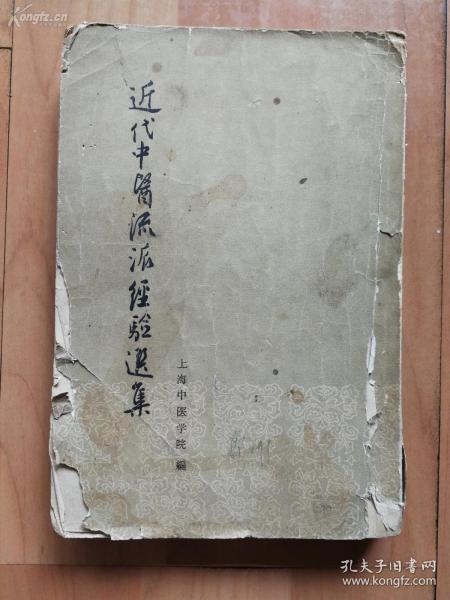 Kongfz.cn
近代中醫流派經驗選集
上海中医学院 編
孔夫子旧书网
www.kongfz.com